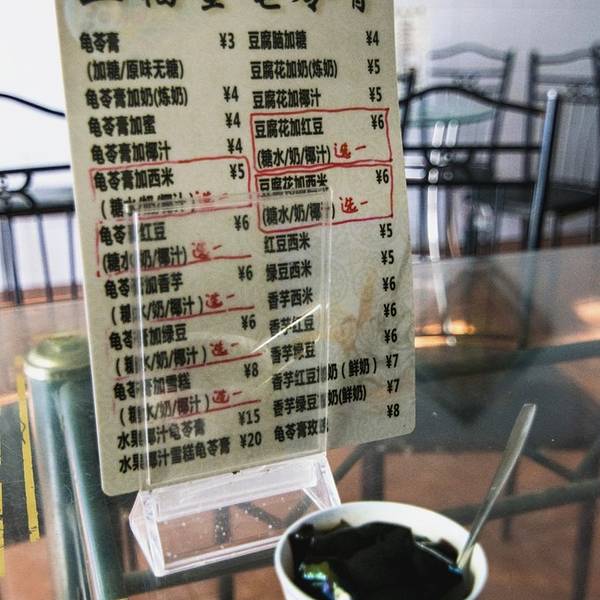 龟苓膏 ¥3
(加糖/原味无糖)
龟苓膏加奶(炼奶) ¥4
龟苓膏加蜜 ¥4
龟苓膏加椰汁 ¥4
龟苓膏加西米 ¥5
(糖水/奶/椰汁)选一
龟苓 红豆 ¥6
(糖水/奶/椰汁)选一
龟苓膏加香芋 ¥6
(糖水/奶/椰汁)选一
龟苓膏加绿豆 ¥6
(糖水/奶/椰汁)选一
龟苓膏加雪糕 ¥8
(糖水/奶/椰汁)选一
水果椰汁龟苓膏 ¥15
水果椰汁雪糕龟苓膏 ¥20
豆腐脑加糖 ¥4
豆腐花加奶(炼奶) ¥5
豆腐花加椰汁 ¥5
豆腐花加红豆 ¥6
(糖水/奶/椰汁)选一
豆腐花加西米 ¥6
(糖水/奶/椰汁)选一
红豆西米 ¥5
绿豆西米 ¥5
香芋西米 ¥6
香芋红豆 ¥6
香芋绿豆 ¥6
香芋红豆加奶(鲜奶) ¥7
香芋绿豆加奶(鲜奶) ¥7
龟苓膏玫 ¥8